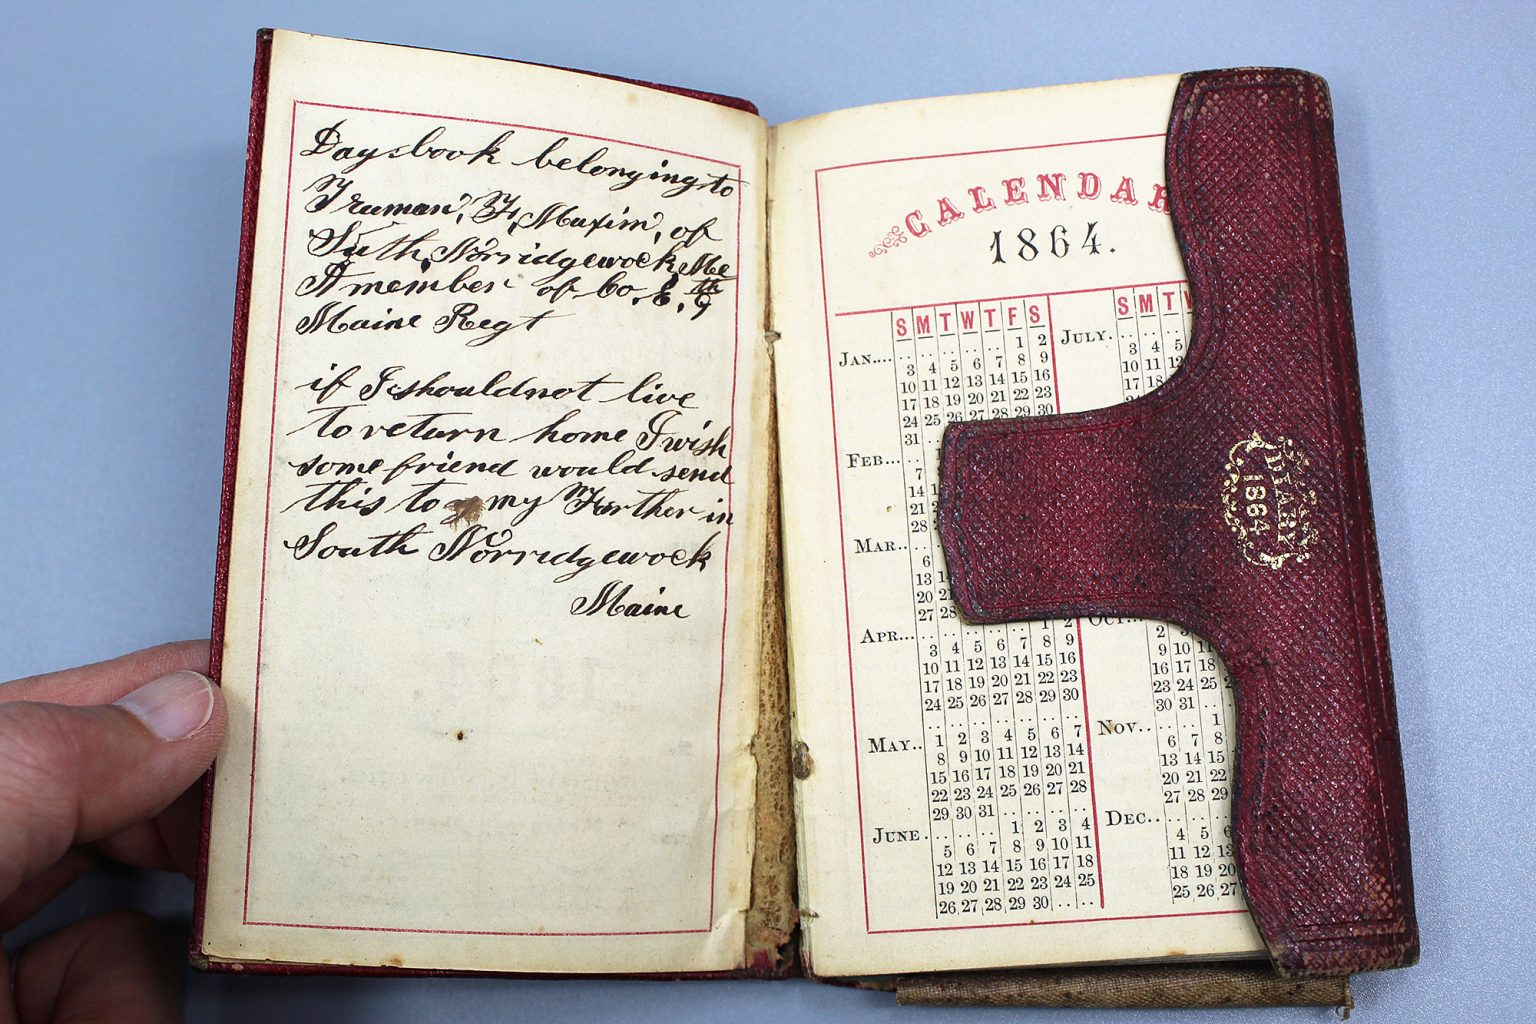 Daysbook belonging to
Truman, H, Maxim, of
Suth, Norridgewock, Me
A member of Co. E. 9th
Maine Regt
if I should not live
to return home I wish
some friend would send
this to my Farther in
South Norridgewock
Maine
CALENDAR
1864.
S M T W T F S
JAN.... .. .. .. .. .. 1 2
3 4 5 6 7 8 9
10 11 12 13 14 15 16
17 18 19 20 21 22 23
24 25 26 27 28 29 30
31 ..
FEB... ..
7
14
21
28
MAR.. ..
6
13
20
27 28
APR... .. .. .. .. .. 1 2
3 4 5 6 7 8 9
10 11 12 13 14 15 16
17 18 19 20 21 22 23
24 25 26 27 28 29 30
.. .. .. .. .. .. ..
MAY.. 1 2 3 4 5 6 7
8 9 10 11 12 13 14
15 16 17 18 19 20 21
22 23 24 25 26 27 28
29 30 31 .. .. .. ..
JUNE. .. .. .. 1 2 3 4
5 6 7 8 9 10 11
12 13 14 15 16 17 18
19 20 21 22 23 24 25
26 27 28 29 30 .. ..
S M T W
JULY. .. .. ..
3 4 5
10 11 12
17 18
OCT...
2 3
9 10 11
16 17 18
23 24 25
30 31 ..
NOV.. .. .. 1
6 7 8
13 14 15
20 21 22
27 28 29
DEC.. .. .. ..
4 5 6
11 12 13
18 19 20
25 26 27
DIARY
1864